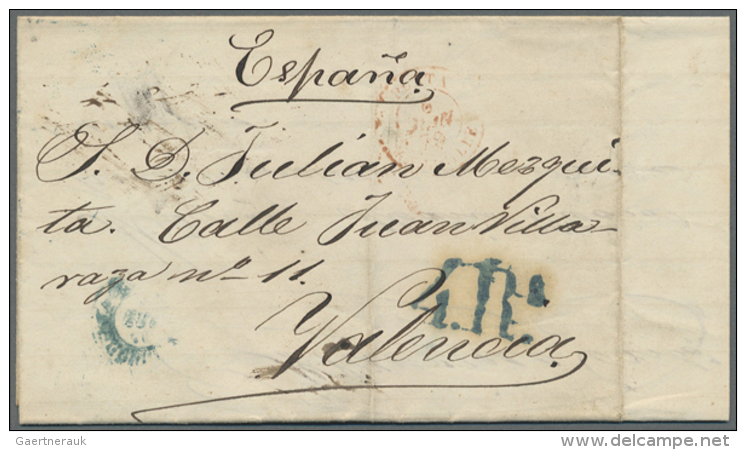 España
S. D. Julian Mezqui-
ta. Calle Juan Villa-
raza nº 11.
4.Rs.
Valencia
Gaertnerauk
delcampe.net